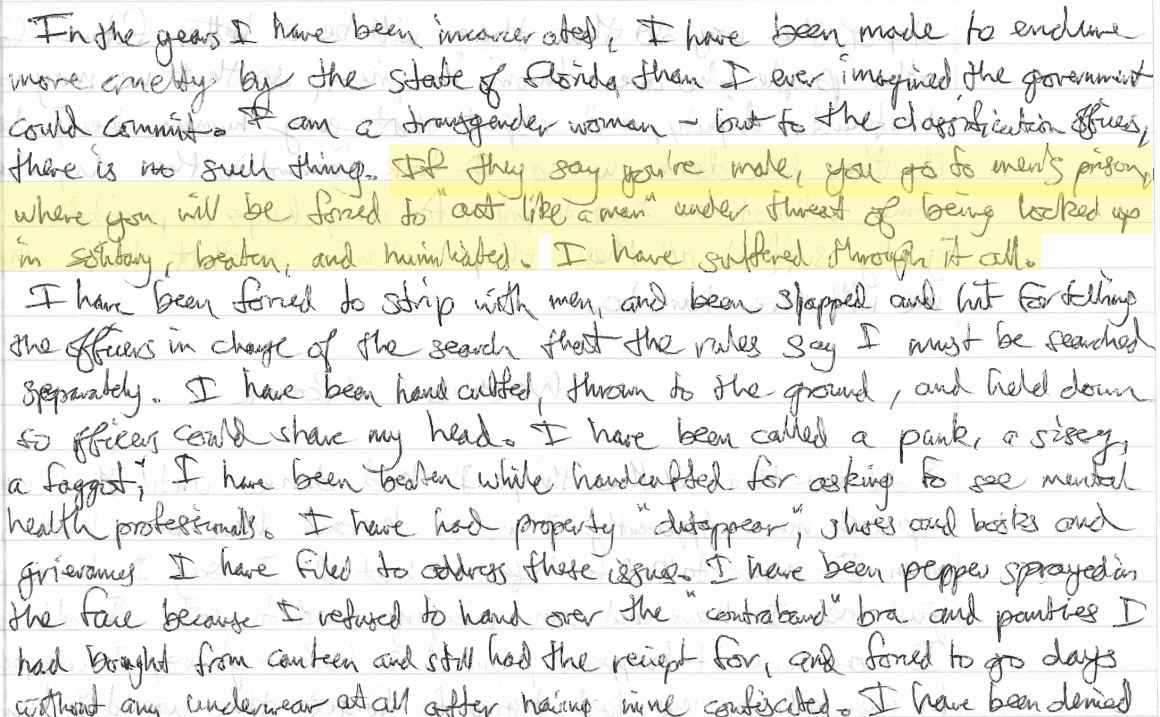 In the years I have been incarcerated, I have been made to endure
more cruelty by the state of Florida than I ever imagined the government
could commit. I am a transgender woman – but to the classification officers,
there is no such thing. If they say you're male, you go to men's prison,
where you will be forced to "act like a man" under threat of being locked up
in solitary, beaten, and humiliated. I have suffered through it all.
I have been forced to strip with men, and been slapped and hit for telling
the officers in charge of the search that the rules say I must be searched
separately. I have been handcuffed, thrown to the ground, and held down
so officers could shave my head. I have been called a punk, a sissy,
a faggot; I have been beaten while handcuffed for asking to see mental
health professionals. I have had property "disappear", shoes and books and
grievances I have filed to address these issues. I have been pepper sprayed in
the face because I refused to hand over the "contraband" bra and panties I
had bought from canteen and still had the reciept for, and forced to go days
without any underwear at all after having mine confiscated. I have been denied